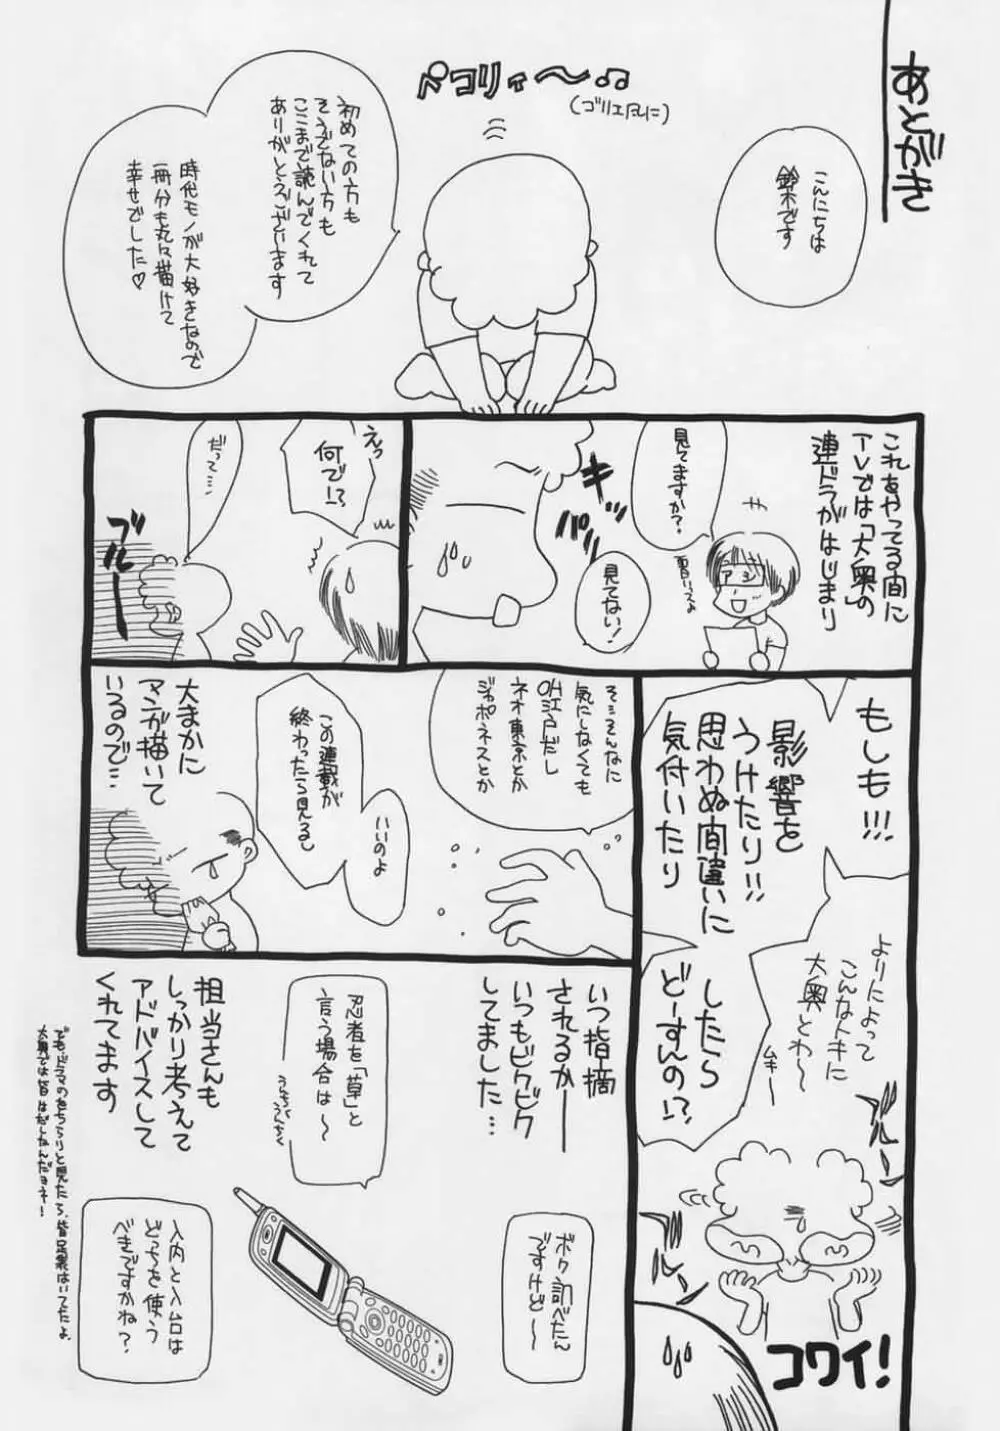 あとがき
こんにちは
鈴木です
ペコリィ〜♫
(ゴリエ風に)
初めての方も
そうでない方も
ここまで読んでくれて
ありがとうございます
時代モノが大好きなので
一冊分も丸々描けて
幸せでした♡
これをやってる間に
TVでは「大奥」の
連ドラがはじまり
見てますか?
アシ
見てない!
キッ
パリッ
えっ
何で!?
だって…
ブルーー
もしも!!!
影響を
うけたり!!
思わぬ間違いに
気付いたり
したら
どーすんの!?
よりによって
こんなトキに
大奥とわ〜
ムキー
ブルン
ブルン
コワイ!
そ…そんなに
気にしなくても
OH江戸だし
ネオ東京とか
ジャポネスとか
いいのよ
この連載が
終わったら見る
大まかに
マンガ描いて
いるので…
いつ指摘
されるかー
いつもビクビク
してました…
忍者を「草」と
言う場合は〜
担当さんも
しっかり考えて
アドバイスして
くれてます
ボク調べたん
ですけど〜
入内と入台は
どっちを使う
べきですかね?
でもドラマのをちらりと見たら、皆足袋はいてたよ。
大奥では皆はだしなんだヨネー!